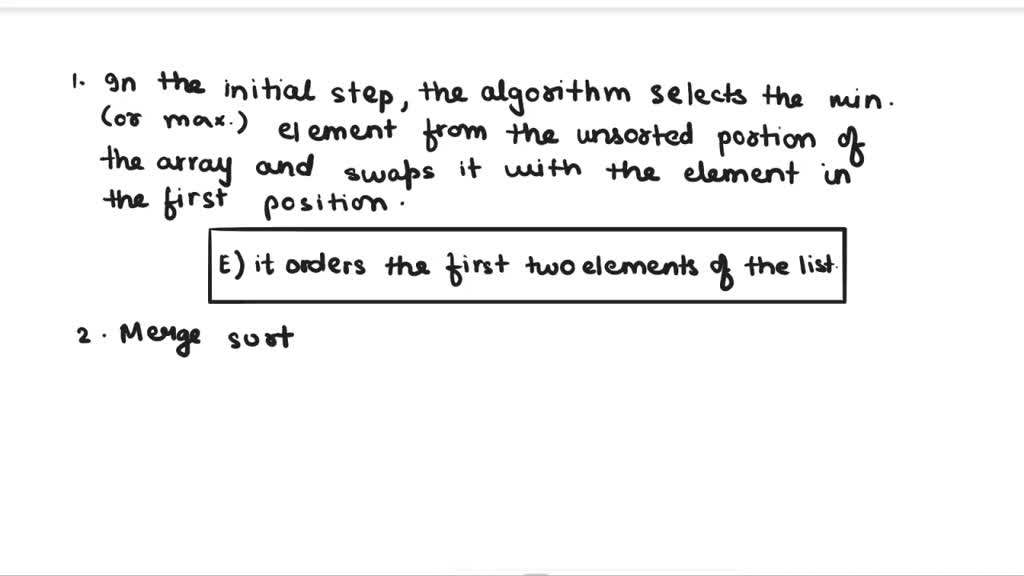 1. In the initial step, the algorithm selects the min.
(or max.) element from the unsorted portion of
the array and swaps it with the element in
the first position.
E) it orders the first two elements of the list.
2. Merge sort